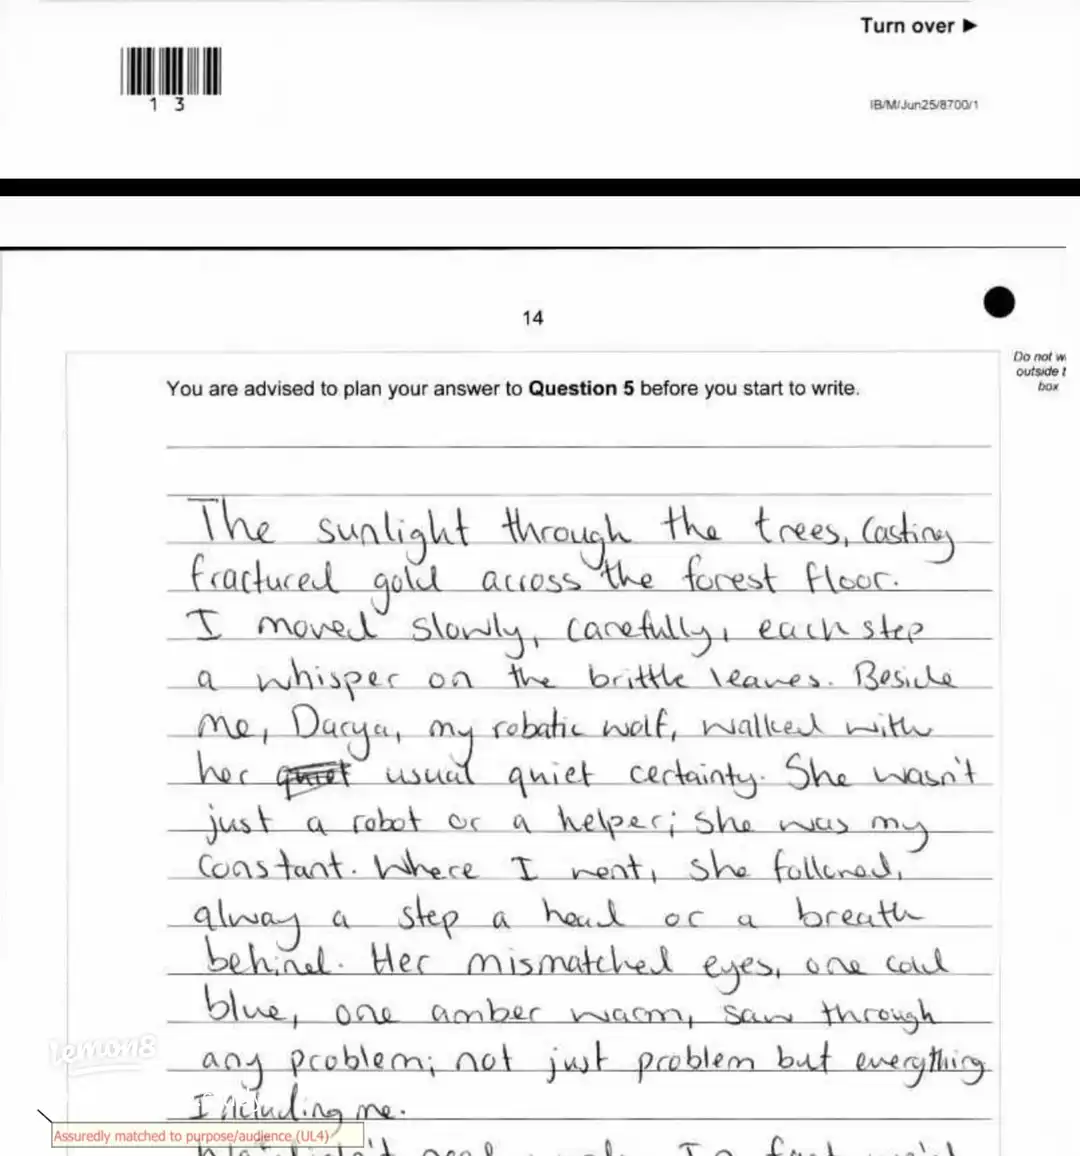 Turn over ►
1 3
IB/M/Jun25/8700/1
14
Do not w
outside t
box
You are advised to plan your answer to Question 5 before you start to write.
The sunlight through the trees, casting
fractured gold across the forest floor.
I moved slowly, carefully, each step
a whisper on the brittle leaves. Beside
me, Darya, my robatic wolf, walked with
her quiet usual quiet certainty. She wasn't
just a robot or a helper; she was my
constant. Where I went, she followed,
alway a step a head or a breath
behind. Her mismatched eyes, one cold
blue, one amber warm, saw through
any problem; not just problem but everything
Including me.
lemon8
Assuredly matched to purpose/audience (UL4)